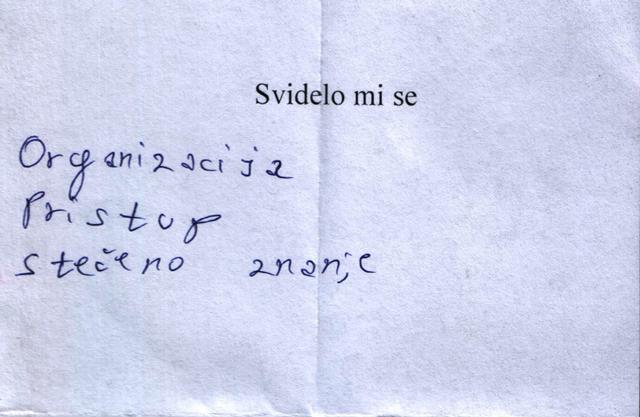 Svidelo mi se
Organizacija
Pristup
stečeno znanje